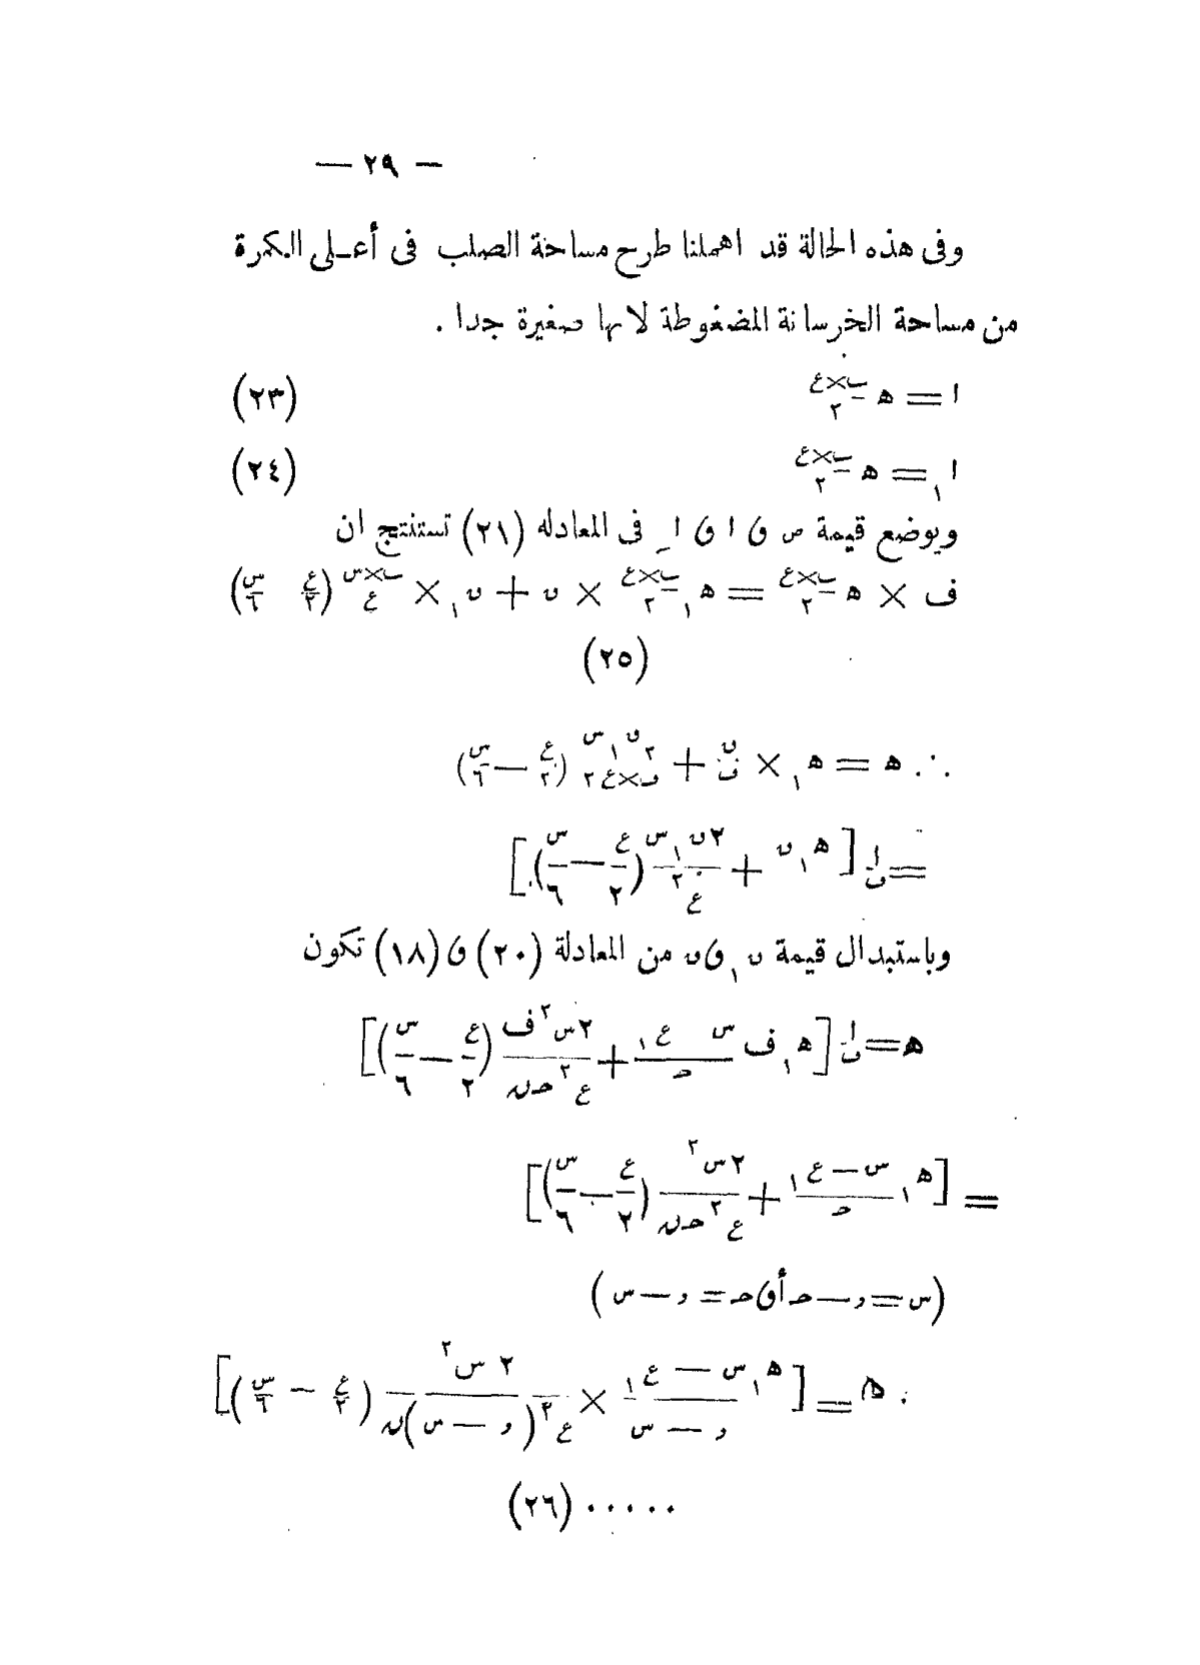 — ٢٩ —
وفى هذه الحالة قد اهملنا طرح مساحة الصلب فى أعلى الكمرة
من مساحة الخرسانة المضغوطة لانها صغيرة جدا .
ا = ه ب×ع/٢ (٢٣)
ا١ = ه ب×ع/٢ (٢٤)
وبوضع قيمة ص ق ا ق ا فى المعادله (٢١) تستنتج ان
ف × ه ب×ع/٢ = ه١ ب×ع/٢ × ں + ں١ × ب×س/ع (ع/٢ س/٦)
(٢٥)
∴ ه = ه١ × ں/ف + ٢ں١س/ف×ع٢ (ع/٢ — س/٦)
= ا/ف [ه١ں + ٢ں١س/ع٢ (ع/٢ — س/٦)]
وباستبدال قيمة ں١ ق ں من المعادلة (٢٠) ق (١٨) تكون
ه = ا/ف [ه١ ف س ع١/ح + ٢س٢ف/ع٢حں (ع/٢ — س/٦)]
= [ه١ س — ع١/ح + ٢س٢/ع٢حں (ع/٢ — س/٦)]
(س = و — ح أق ح = و — س)
. ه = [ه١ س — ع١/و — س × ٢ س٢/ع٢(و — س)ں (ع/٢ — س/٦)]
. . . . . (٢٦)